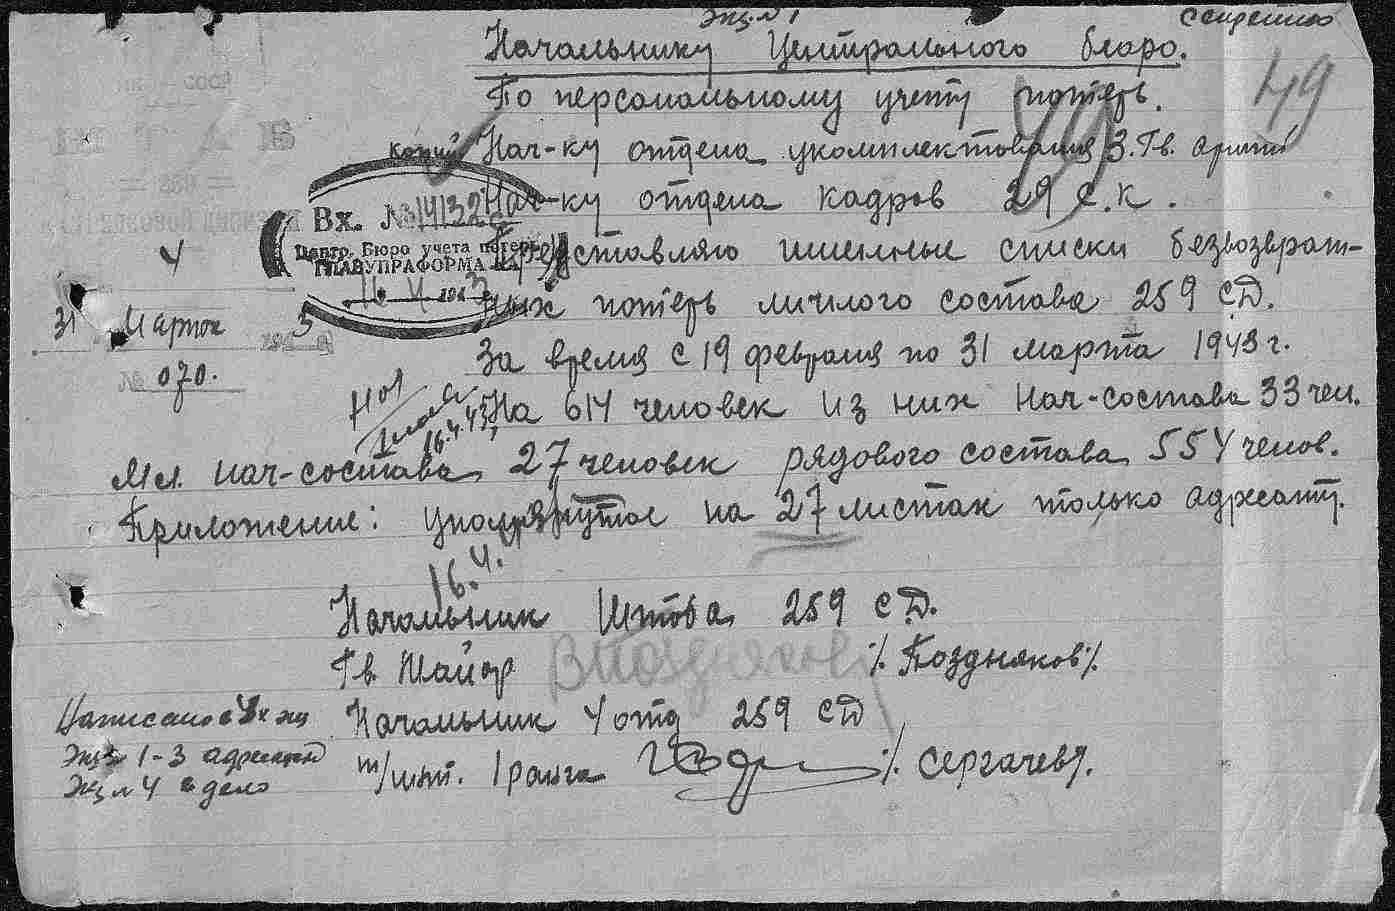 Экз. № 1
Секретно
Начальнику Центрального бюро.
По персональному учету потерь.
49
Копии Нач-ку отдела укомплектования 3. Гв. армии
ШТАБ
Нач-ку отдела кадров 29 с.к.
Вх. №14132с
Центр. Бюро учета потерь
ГЛАВУПРАФОРМА КА
Представляю именные списки безвозврат-
4
ных потерь личного состава 259 СД.
31 Марта 3
За время с 19 февраля по 31 марта 1943 г.
№ 070.
На 614 человек из них нач-состава 33 чел.
16.4.43
Мл. нач-состава 27 человек рядового состава 554 челов.
Приложение: упомянутое на 27 листах только адресату.
16.4.
Начальник Штаба 259 СД.
Гв. Майор /. Поздняков/.
ВПоздняков
Написано в 4х экз
Начальник 4 отд 259 СД
Экз 1-3 адресатам
т/инт. 1 ранга /. Сергачев/.
Экз № 4 в дело